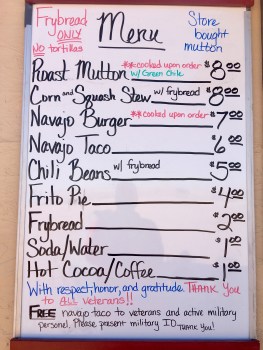 Frybread ONLY
NO tortillas
Menu
Store bought mutton
Roast Mutton **cooked upon order w/ Green Chile $8.00
Corn and Squash Stew w/ frybread $8.00
Navajo Burger **cooked upon order $7.00
Navajo Taco $6.00
Chili Beans w/ frybread $5.00
Frito Pie $4.00
Frybread $2.00
Soda/Water $1.00
Hot Cocoa/Coffee $1.00
With respect, honor, and gratitude. THANK YOU
to ALL Veterans!!
FREE navajo taco to veterans and active military
personel. Please present military ID. THANK YOU!